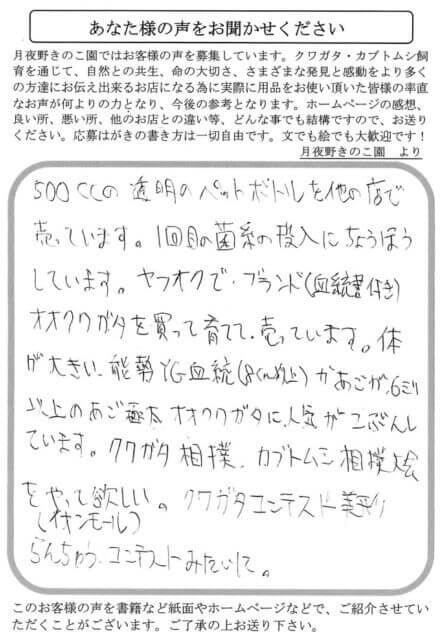 あなた様の声をお聞かせください
月夜野きのこ園ではお客様の声を募集しています。クワガタ・カブトムシ飼
育を通じて、自然との共生、命の大切さ、さまざまな発見と感動をより多く
の方達にお伝え出来るお店になる為に実際に用品をお使い頂いた皆様の率直
なお声が何よりの力となり、今後の参考となります。ホームページの感想、
良い所、悪い所、他のお店との違い等、どんな事でも結構ですので、お送り
ください。応募はがきの書き方は一切自由です。文でも絵でも大歓迎です！
月夜野きのこ園 より
500ccの透明のペットボトルを他の店で
売っています。1回目の菌糸の投入にちょうほう
しています。ヤフオクで、ブランド(血統書付き)
オオクワガタを買って育てて、売っています。体
が大きい、能勢YG血統(8cm以上)かあごが、6ミリ
以上のあご極太オオクワガタに、人気が二ぶんし
ています。クワガタ相撲、カブトムシ相撲大会
をやって欲しい。クワガタコンテスト
(イオンモール)
らんちゅうコンテストみたいに。
このお客様の声を書籍など紙面やホームページなどで、ご紹介させてい
ただくことがございます。ご了承の上お送り下さい。